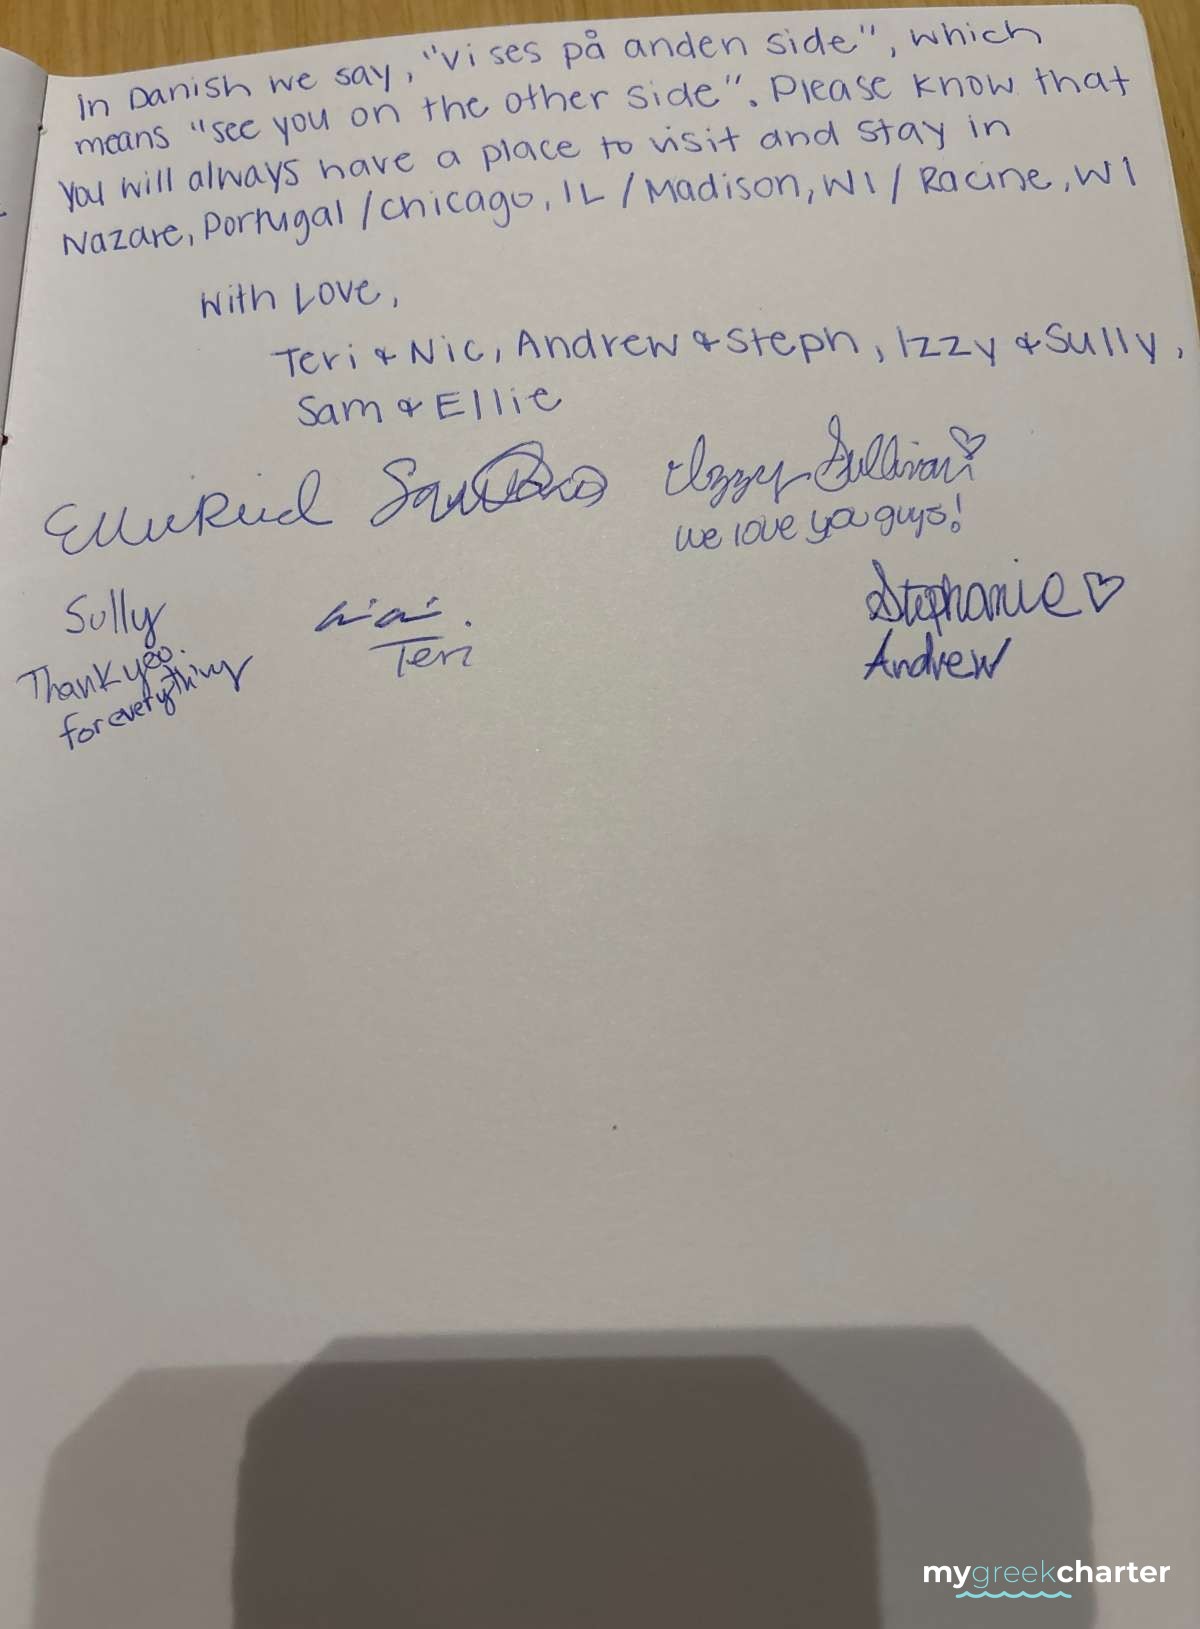 In Danish we say, "vi ses på anden side", which
means "see you on the other side". Please know that
you will always have a place to visit and stay in
Nazare, Portugal / Chicago, IL / Madison, WI / Racine, WI
With Love,
Teri & Nic, Andrew & Steph, Izzy & Sully,
Sam & Ellie
Izzy Sullivan
we love you guys!
Sully
Thank you
for everything
Teri
Stephanie ♡
Andrew
mygreekcharter